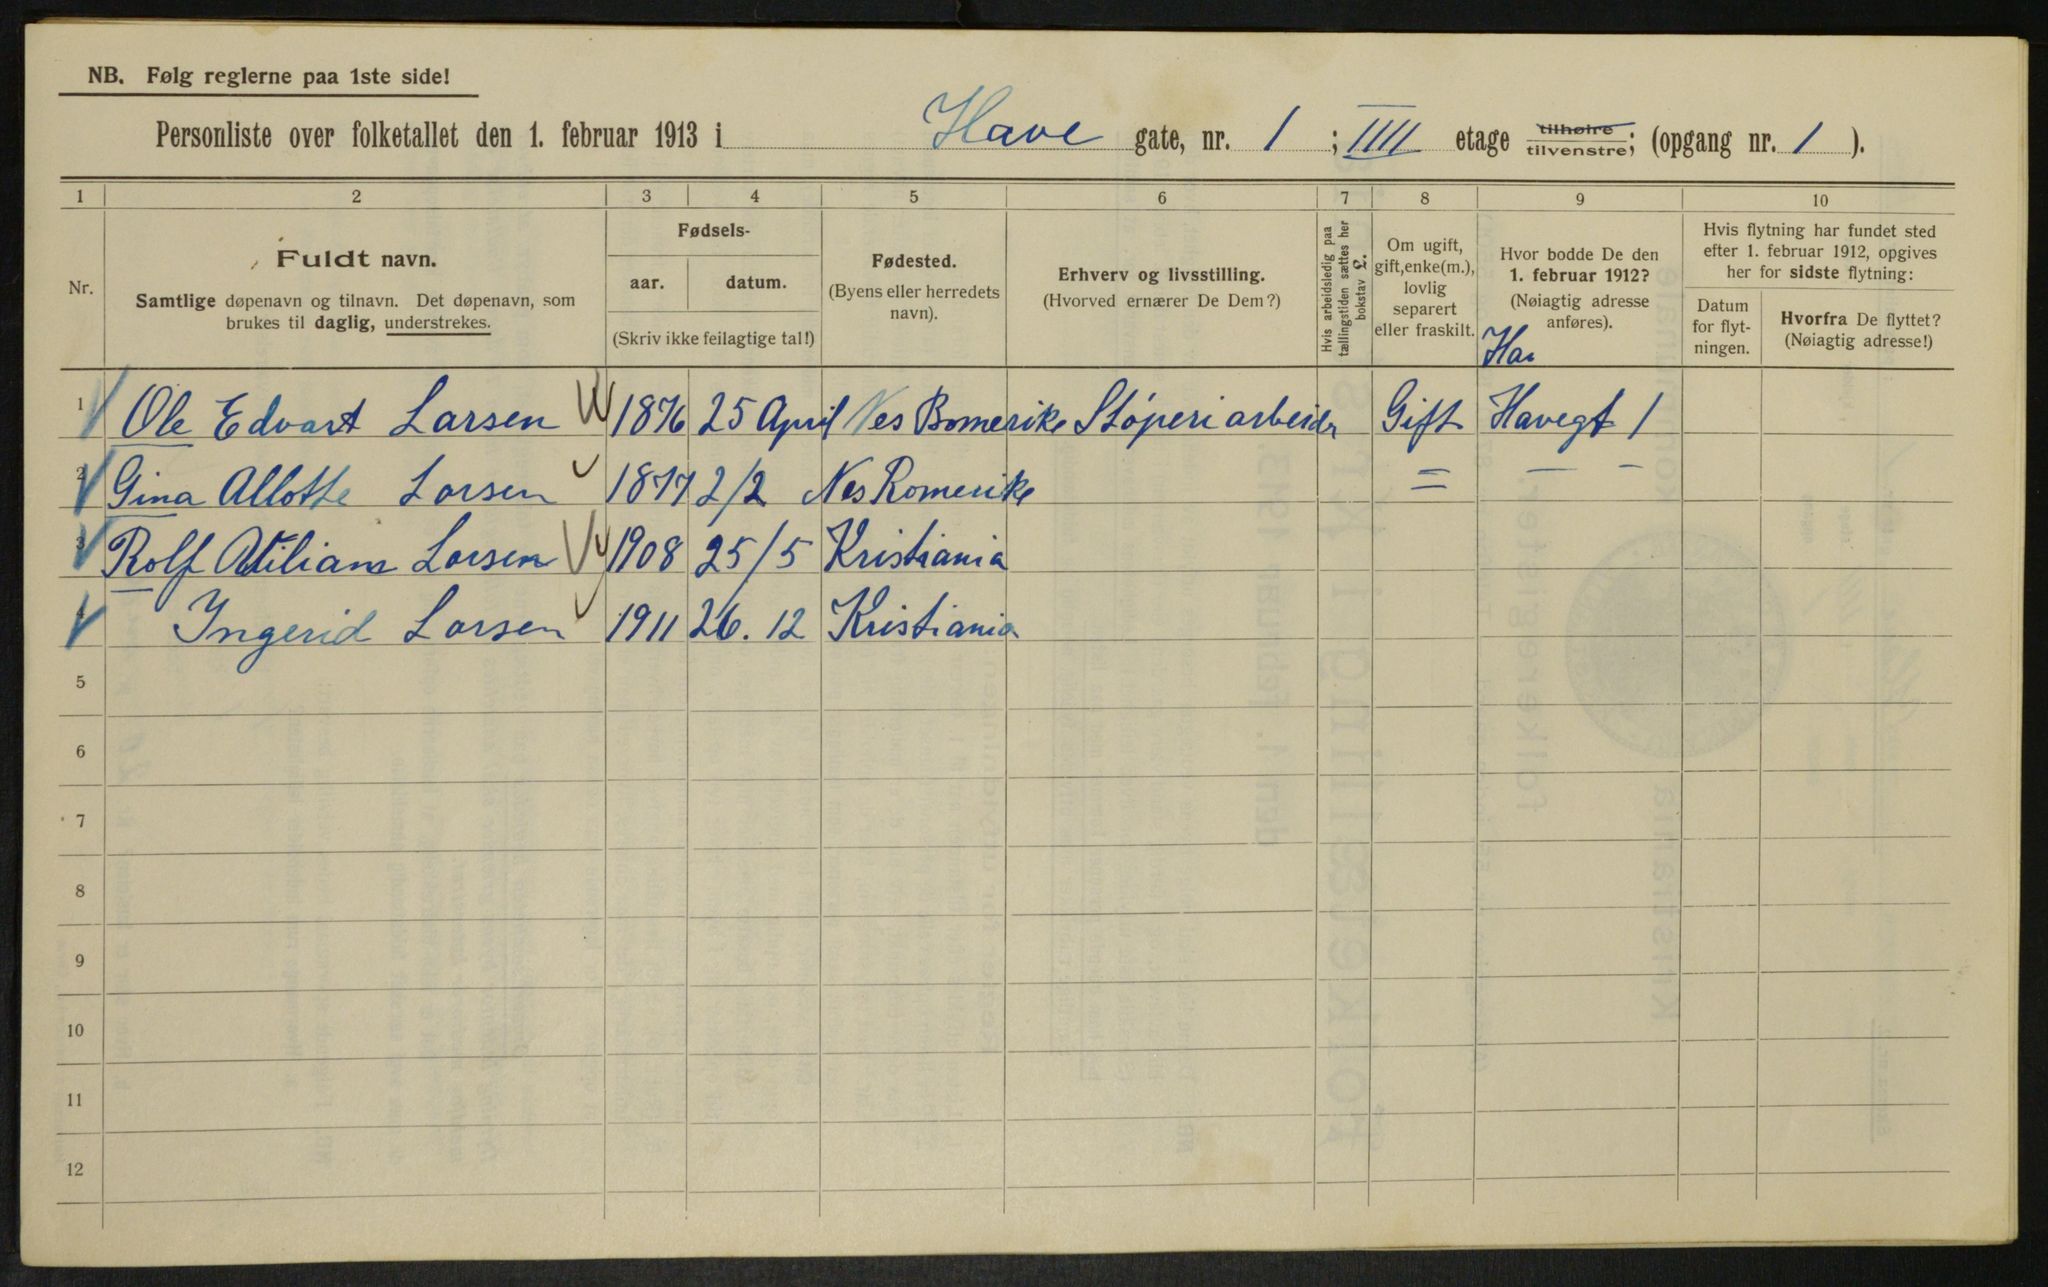 NB. Følg reglerne paa 1ste side!
Personliste over folketallet den 1. februar 1913 i Have gate, nr. 1 ; IIII etage tilhøire tilvenstre; (opgang nr. 1 ).
1 2 3 4 5 6 7 8 9 10
Nr.
Fuldt navn.
Samtlige døpenavn og tilnavn. Det døpenavn, som
brukes til daglig, understrekes.
Fødsels-
aar. datum.
(Skriv ikke feilagtige tal!)
Fødested.
(Byens eller herredets
navn).
Erhverv og livsstilling.
(Hvorved ernærer De Dem?)
Hvis arbeidsledig paa
tællingstiden sættes her
bokstav L.
Om ugift,
gift, enke(m.),
lovlig
separert
eller fraskilt.
Hvor bodde De den
1. februar 1912?
(Nøiagtig adresse
anføres).
Hav
Hvis flytning har fundet sted
efter 1. februar 1912, opgives
her for sidste flytning:
Datum
for flyt-
ningen.
Hvorfra De flyttet?
(Nøiagtig adresse!)
1 Ole Edvart Larsen 1876 25 April Nes Romerike Støperiarbeider Gift Havegt 1
2 Gina Allotte Larsen 1877 2/2 Nes Romerike = — –
3 Rolf Larsen 1908 25/5 Kristiania
4 Ingerid Larsen 1911 26. 12 Kristiania
5
6
7
8
9
10
11
12